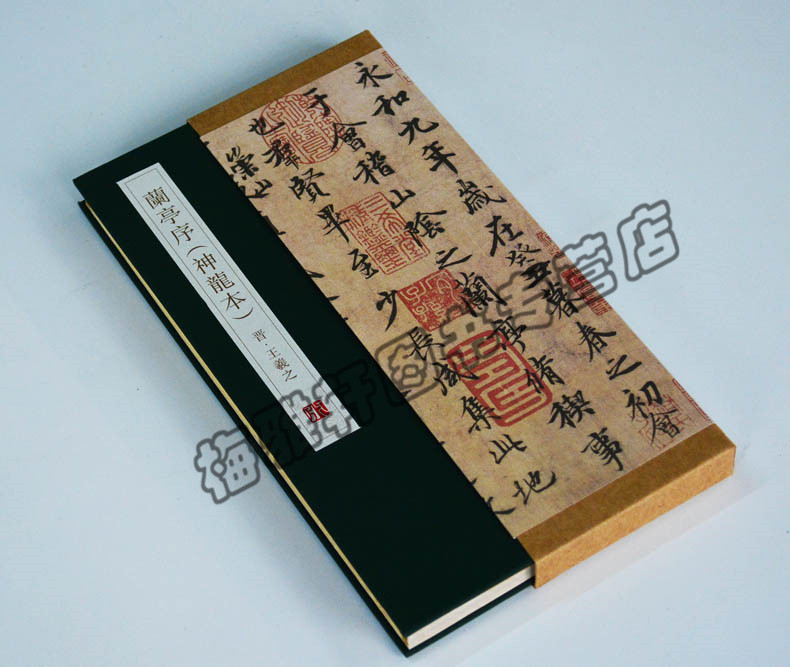 永和九年歲在癸丑暮春之初會
于會稽山陰之蘭亭脩稧事
也羣賢畢至少長咸集此地
蘭亭序(神龍本)
晋·王羲之
梅雅轩图书专营店